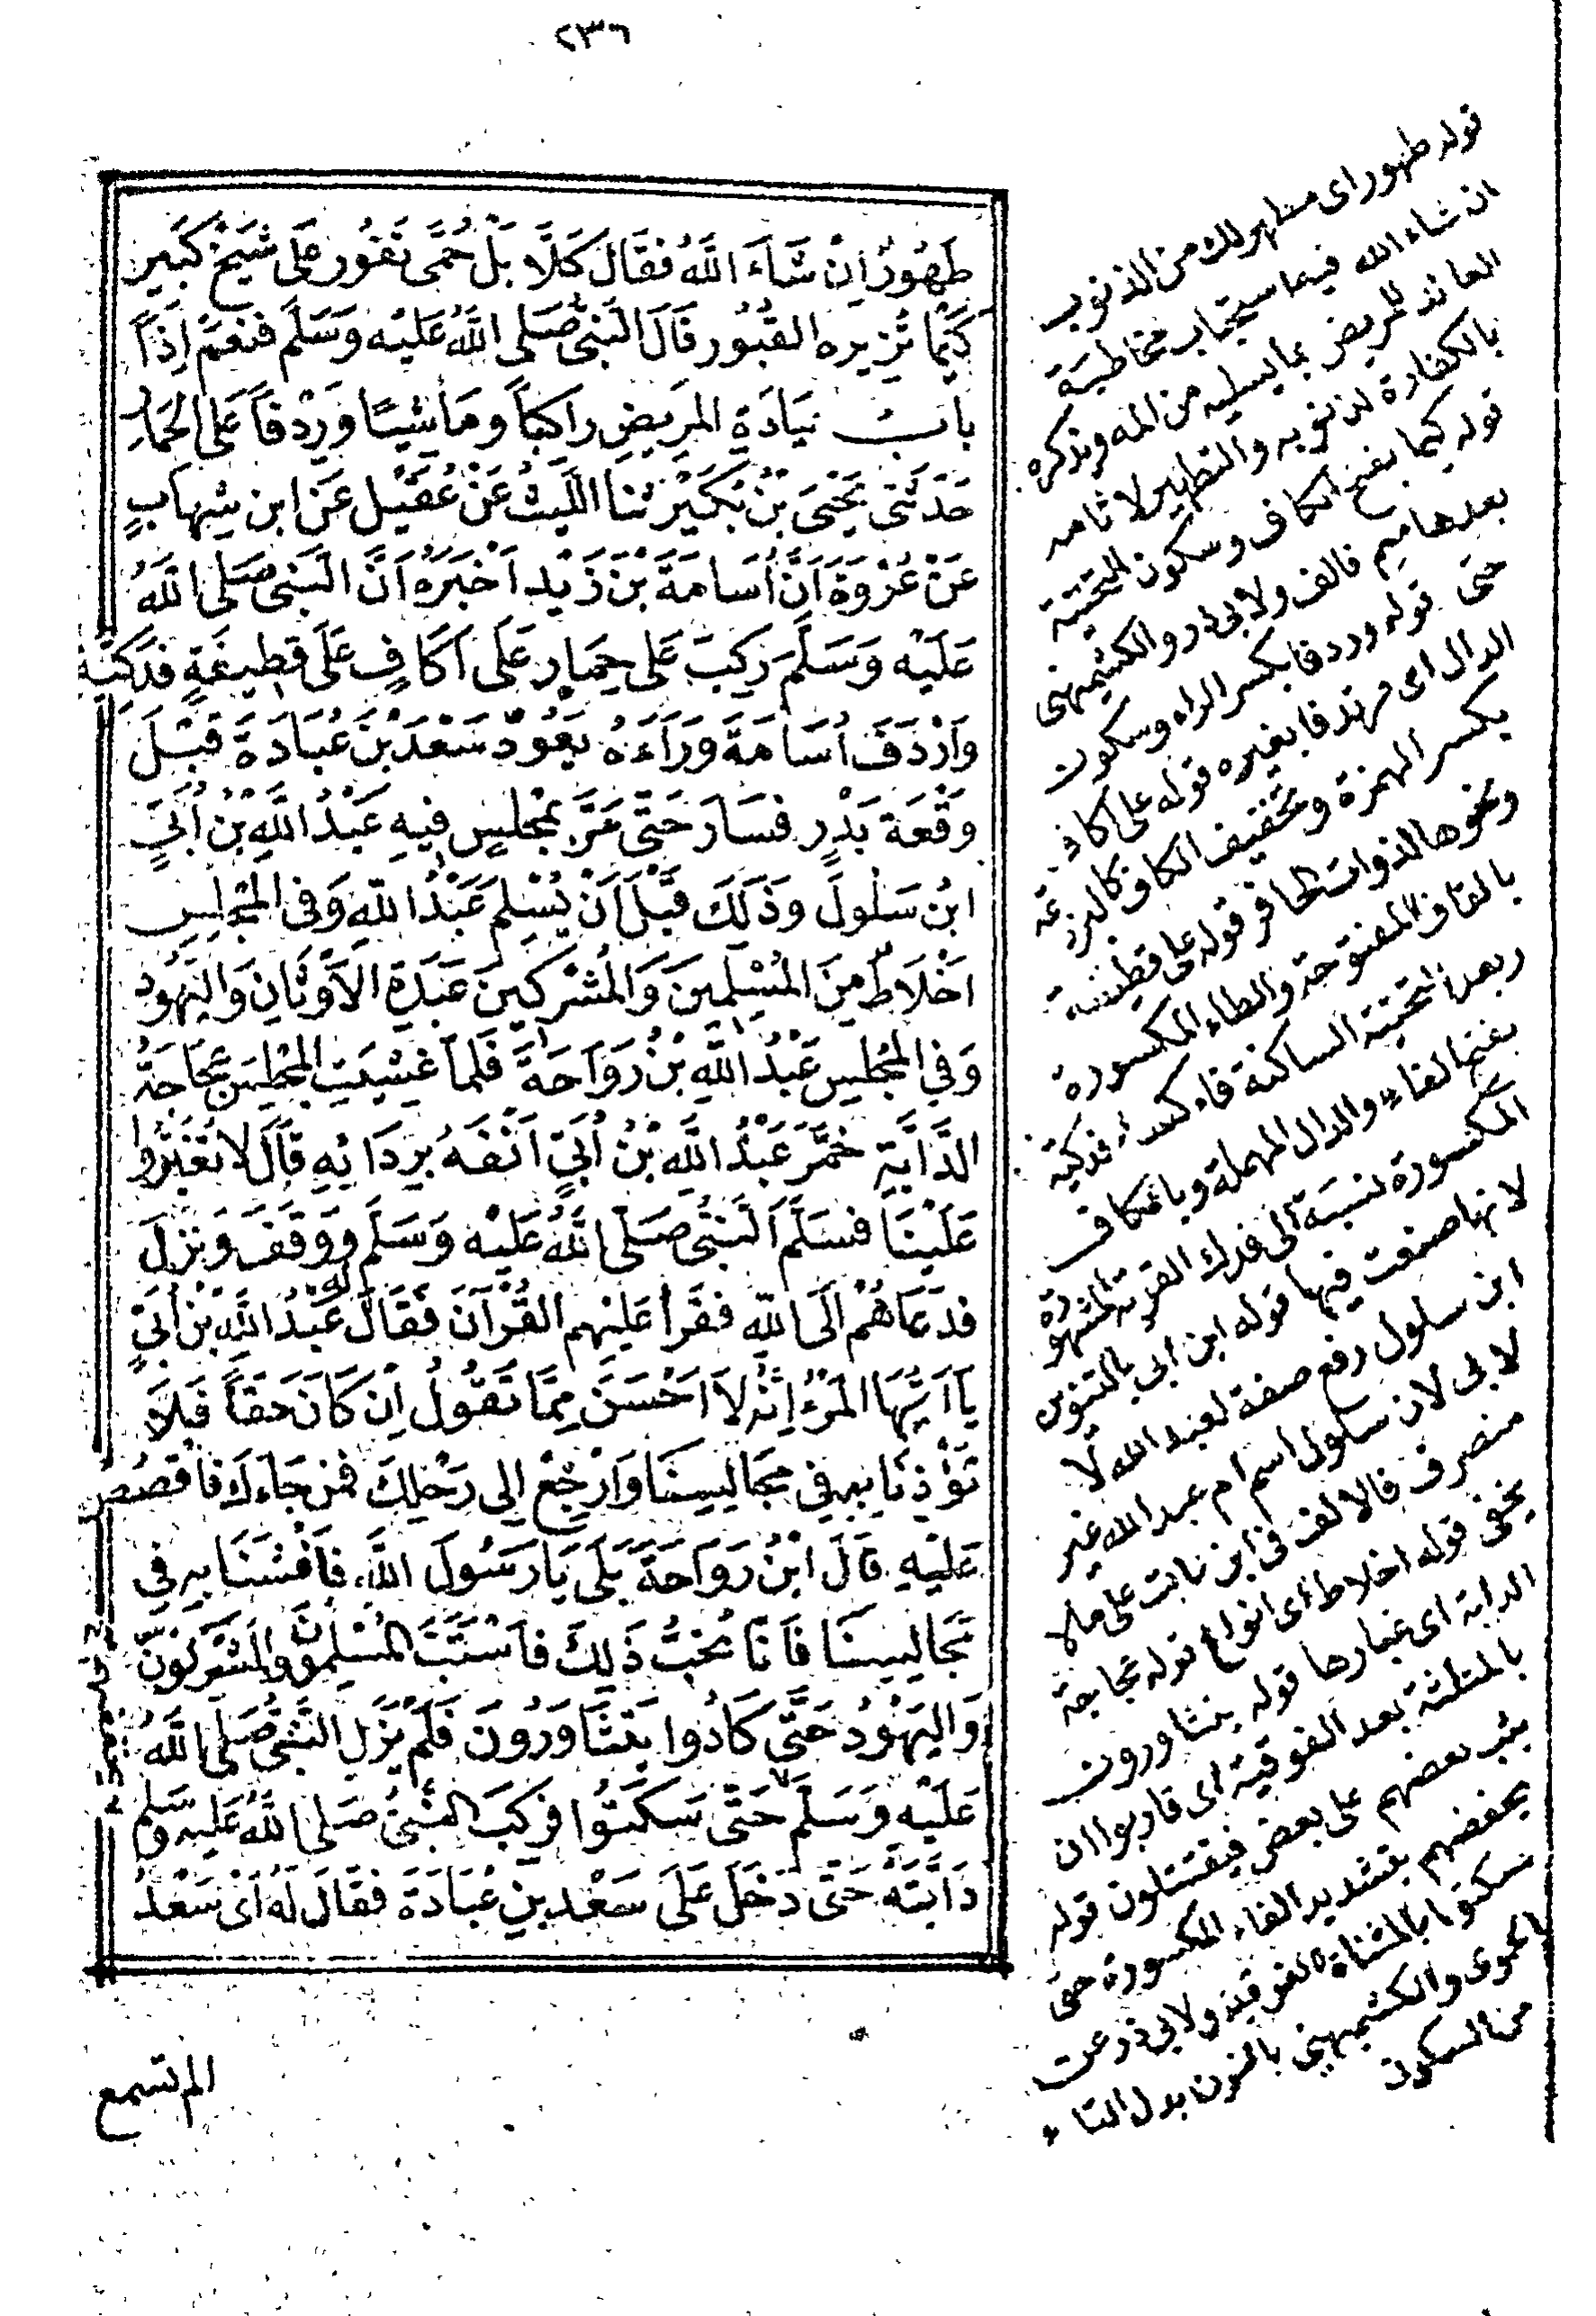 ٢٣٦
طَهُورٌ اِنْ شَآءَ اللّٰهُ فَقَالَ كَلَّا بَلْ حُمَّى تَفُور عَلَى شَيْخ كَبِير
كَيْمَا تُزِيره القُبُور قَالَ النَّبىُّ صَلى اللّٰهُ عَلَيْه وَسَلَّم فَنَعَمْ اِذَاً
بابُ عِيَادَةِ المَرِيضِ رَاكِبَاً وَمَاشِيًا وَرِدْفَاً عَلَى الحِمَارِ
حَدَّثَنَى يَحْيَى بْنُ بُكَيْرٍ ثنا اللَّيثُ عَنْ عُقَيْل عَن ابن شِهَابٍ
عَنْ عُرْوَةَ اَنَّ اُسَامَةَ بْنَ زَيْد اَخْبَرَهُ اَنَّ النَّبىَّ صَلى اللّٰهُ
عَلَيْه وَسَلَّمَ رَكِبَ عَلى حِمَارٍ عَلَى اَكَافٍ عَلَى قَطِيفَةٍ فَدَكِيَّةٍ
وَاَرْدَفَ اُسَامَةَ وَرَاءَهُ يَعُودُ سَعْدَ بْنَ عُبَادَةَ قَبْلَ
وَقْعَة بَدْر فَسَارَ حَتَّى مَرَّ بمَجْلِسٍ فِيهِ عَبْدُ اللَّهِ بْنُ اُبَىٍّ
ابنُ سَلُولَ وَذَلِكَ قَبْلَ اَنْ يُسْلِمَ عَبْدُ اللّٰهِ وَفى المَجْلِسِ
اَخْلَاطٌ مِنَ المُسْلِمِينَ وَالمُشْرِكِينَ عَبَدَةِ الاَوْثَانِ وَاليَهُودِ
وَفِي المَجْلِسِ عَبْدُ اللَّهِ بْنُ رَوَاحَةَ فَلَما غَشِيَتِ المَجْلِسَ عَجَاجَةُ
الدَّابَّةِ خَمَّرَ عَبْدُ اللَّهِ بْنُ اُبَىٍّ اَنْفَهُ بِرِدَائِهِ قَالَ لا تُغَبِّرُوا
عَلَيْنَا فَسَلَّمَ النَّبىُّ صَلَّى اللّٰهُ عَلَيْه وَسَلَّم وَوَقَفَ وَنَزَلَ
فَدَعَاهُمْ اِلَى اللّٰهِ فَقَرَأَ عَلَيْهِم القُرْآنَ فَقَالَ لَهُ عَبْدُ اللّٰهِ بْنُ اُبَىٍّ
يَا اَيُّهَا المَرْءُ اِنَّهُ لاَ اَحْسَنَ مِمَّا تَقُولُ اِن كَانَ حَقَّاً فَلَا
تُؤْذِنَا بِهِ فِي مَجَالِسِنَا وَارْجِعْ اِلى رَحْلِكَ فَمَنْ جَاءَكَ فَاقْصُصْ
عَلَيْهِ قَالَ ابْنُ رَوَاحَةَ بَلَى يَا رَسُولَ اللَّهِ فَاَغْشَنَا بِهِ فِي
مَجَالِسِنَا فَاِنَّا نُحِبُّ ذَلِكَ فَاسْتَبَّ المُسْلِمُونَ وَالمُشْرِكُونَ
وَاليَهُودُ حَتَّى كَادُوا يَتَثَاوَرُونَ فَلَمْ يَزَلِ النَّبىُّ صَلَى اللّٰهُ
عَلَيْه وَسَلَّم حَتَّى سَكَتُوا فَرَكِبَ النَّبىُّ صَلى اللّٰهُ عَلَيْه وَسَلم
دَابَّتَهُ حَتَّى دَخَلَ عَلَى سَعْد بن عُبَادَةَ فَقَالَ لَهُ اَىْ سَعْدُ
الم تسمع
قوله طهور اى مطهر لك من الذنوب
ان شاء الله فيما ستحباب مخاطبة
العائد للمريض بما يسليه من المه ويذكره
بالكفارة لذنوبه والتطهير لاثامه
قوله كيما بفتح الكاف وسكون التحتية
بعدها ميم فالف ولابى ذر والكشميهنى
حتى قوله وردفا بكسر الراء وسكون
الدال اى مرتدفا بغيره قوله على اكاف
بكسر الهمزة وتخفيف الكاف كالبرذعة
ونحوها لذوات الحافر قوله على قطيفة
بالقاف المفتوحة والطاء المكسورة
وبعد التحتية الساكنة فاء كساء فدكية
بفتح الفاء والدال المهملة وبالكاف
المكسورة نسبة الى فدك القرية المشهورة
لانها صنعت فيها قوله ابن ابى بالتنوين
ابن سلول رفع صفة لعبد الله لا
لابى لان سلول اسم ام عبد الله غير
منصرف فالالف فى ابن ثابت على ما لا
يخفى قوله اخلاط اى انواع قوله عجاجة
الدابة اى غبارها قوله يتثاورون
بالمثلثة بعد الفوقية اى قاربوا ان
يثب بعضهم على بعض فيقتتلون قوله
يخفضهم بتشديد الفاء المكسورة حتى
سكتوا بالمثناة الفوقية ولابى ذر عن
الحموى والكشميهنى بالنون بدل التاء
من السكون